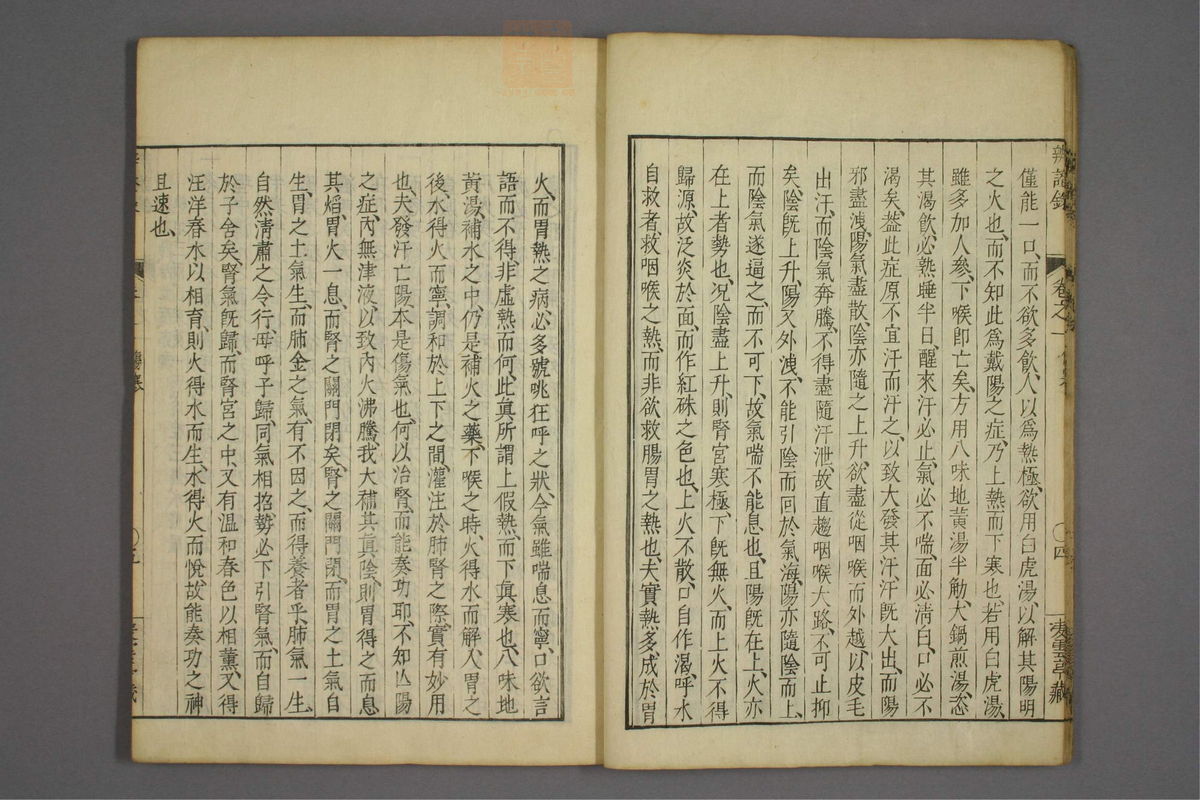 僅能一口、而不欲多飲、人以爲熱極、欲用白虎湯、以解其陽明
之火也、而不知此爲戴陽之症、乃上熱而下寒也、若用白虎湯、
雖多加人參、下喉卽亡矣、方用八味地黃湯半觔、大鍋煎湯、恣
其渴飲、必熟睡半日、醒來汗必止、氣必不喘、面必淸白、口必不
渴矣、葢此症原不宜汗而汗之、以致大發其汗、汗旣大出、而陽
邪盡洩、陽氣盡散、陰亦隨之上升、欲盡從咽喉而外越、以皮毛
出汗、而陰氣奔騰、不得盡隨汗泄、故直趨咽喉大路、不可止抑
矣、陰旣上升、陽又外洩、不能引陰而回於氣海、陽亦隨陰而上、
而陰氣遂逼之、而不可下、故氣喘不能息也、且陽旣在上、火亦
在上者勢也、况陰盡上升、則腎宮寒極、下旣無火、而上火不得
歸源、故泛炎於面、而作紅硃之色也、上火不散、口自作渴、呼水
自救者、救咽喉之熱、而非欲救腸胃之熱也、夫實熱多、成於胃
辨證錄 卷之一 四
火、而胃熱之病、必多號咷狂呼之狀、今氣雖喘息而寧、口欲言
語而不得、非虛熱而何、此眞所謂上假熱、而下眞寒也、八味地
黃湯、補水之中、仍是補火之藥、下喉之時、火得水而解、入胃之
後、水得火而寧、調和於上下之間、灌注於肺腎之際、實有妙用
也、夫發汗亡陽、本是傷氣也、何以治腎、而能奏功耶、不知亾陽
之症、內無津液、以致內火沸騰、我大補其眞陰、則胃得之而息
其熖、胃火一息、而腎之關門閉矣、腎之關門閉、而胃之土氣自
生、胃之土氣生、而肺金之氣、有不因之、而得養者乎、肺氣一生、
自然淸肅之令行、母呼子歸、同氣相招、勢必下引腎氣、而自歸
於子舍矣、腎氣旣歸、而腎宮之中、又有溫和春色以相薰、又得
汪洋春水以相育、則火得水而生、水得火而悅、故能奏功之神
且速也、
傷寒